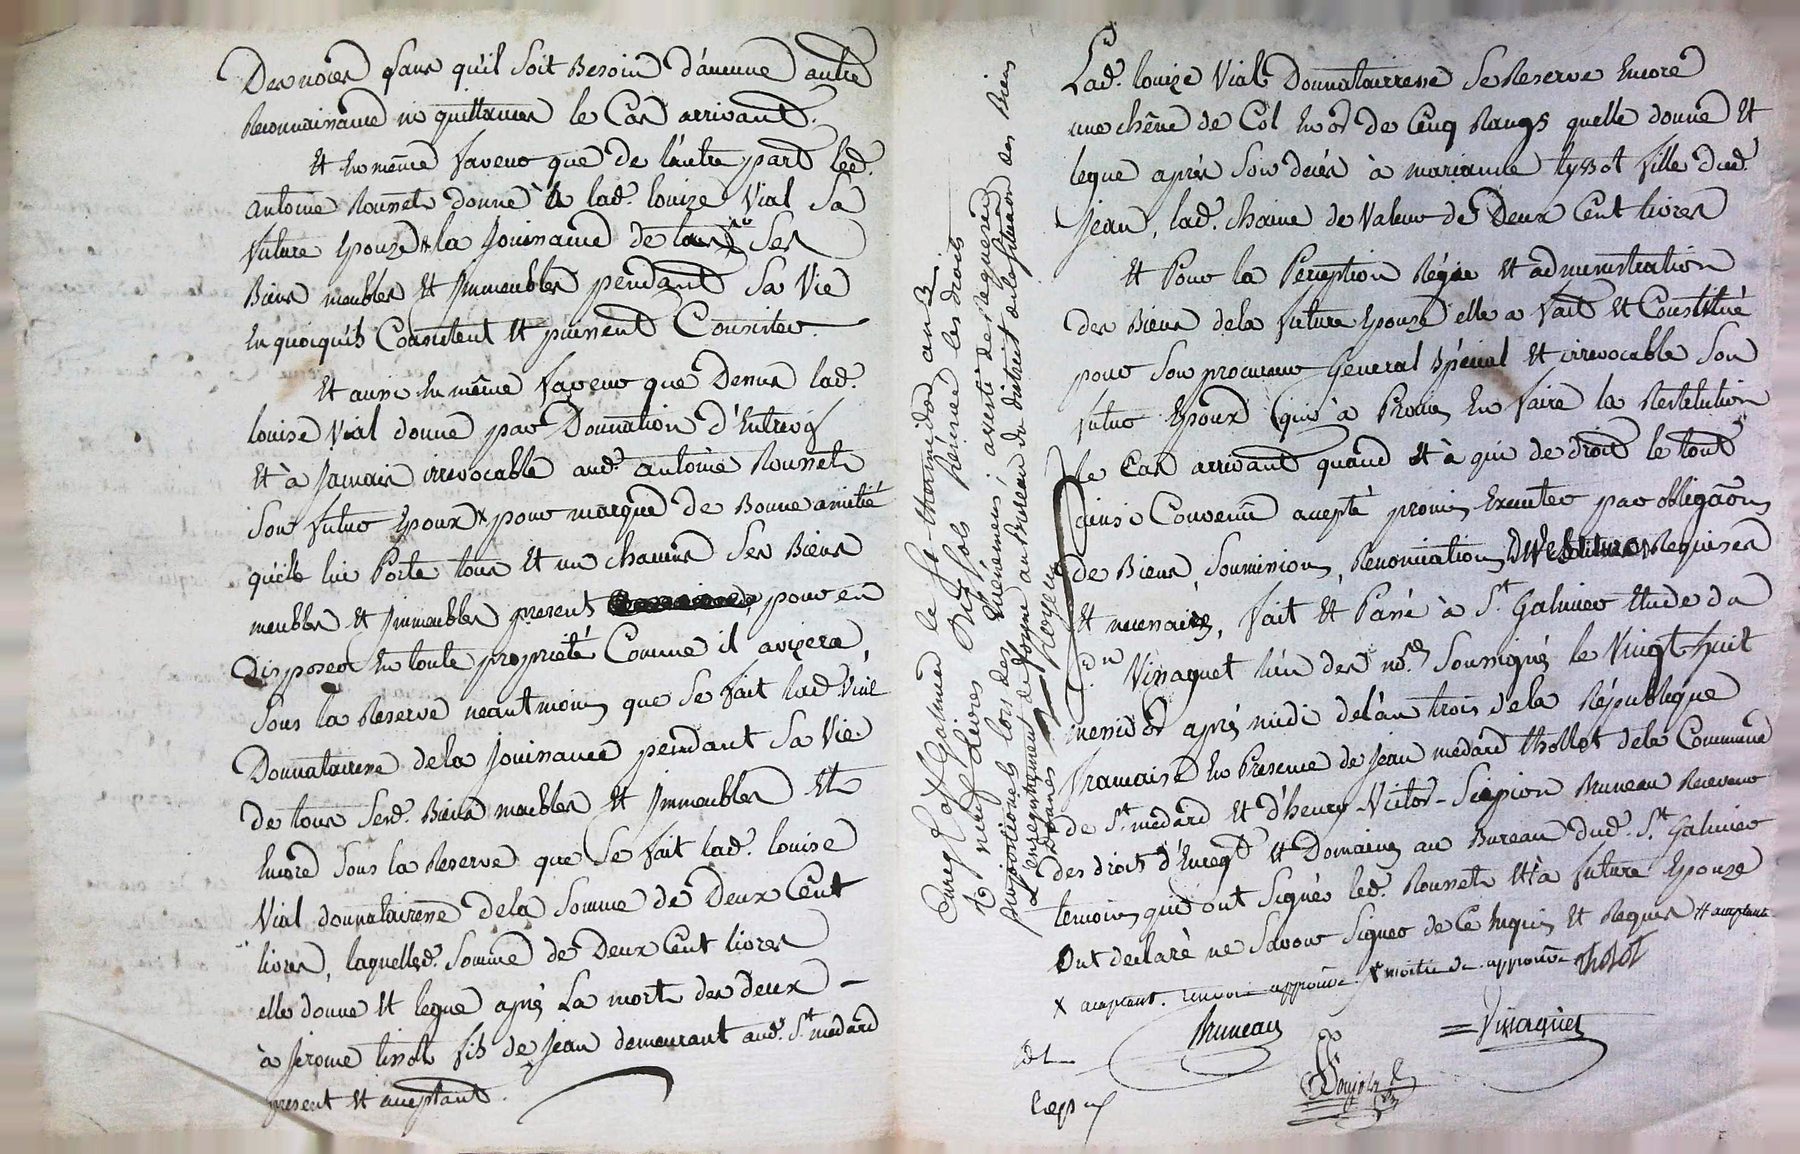 Des noces sans qu'il soit Besoin d'aucune autre
Reconnaissance ni quittances le Cas arrivant.
Et En même faveur que de l'autre part led.
antoine Rousset donne à lad. louize Vial Sa
future Epouze la Jouissance de tous Ses
Biens meubles Et Immeubles pendant Sa Vie
En quoiqu'ils Consistent Et puissent Consister
Et aussi En même faveur que Dessus lad.
louise Vial donne par Donnation d'Entrevif
Et à Jamais irrevocable aud. antoine Rousset
Son futur Epoux x pour marque de Bonne amitié
qu'elle lui Porte tous Et un chacuns Ses Biens
meubles Et Immeubles present pour en
Disposer En toute propriété Comme il avizera,
Sous la Reserve neantmoins que Se fait lad. Vial
Donnatairesse dela Jouissance pendant Sa Vie
de tous Sesd. Biens meubles Et Immeubles Et
Encore Sous la Reserve que Se fait lad. louise
Vial donnatairesse dela Somme de Deux Cent
livres, laquelled. Somme de Deux Cent livres
elle donne Et legue après La mort des deux
à Jerome tissot fils de Jean demeurant aud. St. medard
present Et acceptant.
Enreg. à St Galmier le thermidor an 3.
neuf livres Dix Sols Reservé les droits
proportionels lors des Evenemens; averti de Requerir
L'enregistrement de forme au Bureau du district ou la situation des Biens
Lad. louize Vial Donnatairesse Se Reserve Encore
une chêne de Col En or de Cinq Rangs quelle donne Et
legue après Son decés à marianne tyssot fille dud.
Jean, lad. chaine de Valeur de Deux Cent livres
Et Pour la Perception Régie Et administration
des Biens dela future Epouze elle a fait Et Constitué
pour Son procureur General Spécial Et irrevocable Son
futur Epoux qui à Promis En faire la Restitution
le Cas arrivant quand Et à qui de droit le tout
ainsi Convenu accepté promis Executer par obligâon
de Biens, Soumissions, Renonciations Requises
Et necessaires, fait Et Passé à St. Galmier Etude du
Cn. Vissaguet l'un des nores Soussignés le Vingt huit
messidor après midi del'an trois dela République
française En Presence de Jean medard thollot dela Commune
de St. medard Et d'henry-Victor-Scipion Bruneau Receveur
des droits d'Enregt Et Domaines au Bureau dud. St. Galmier
temoins qui ont Signés led. Rousset Et la future Epouze
Ont declaré ne Savoir Signer de Ce Enquis Et Requis # acceptant
x acceptant. Renvoi approuvé
Tholot
Bruneau
Vissaguet